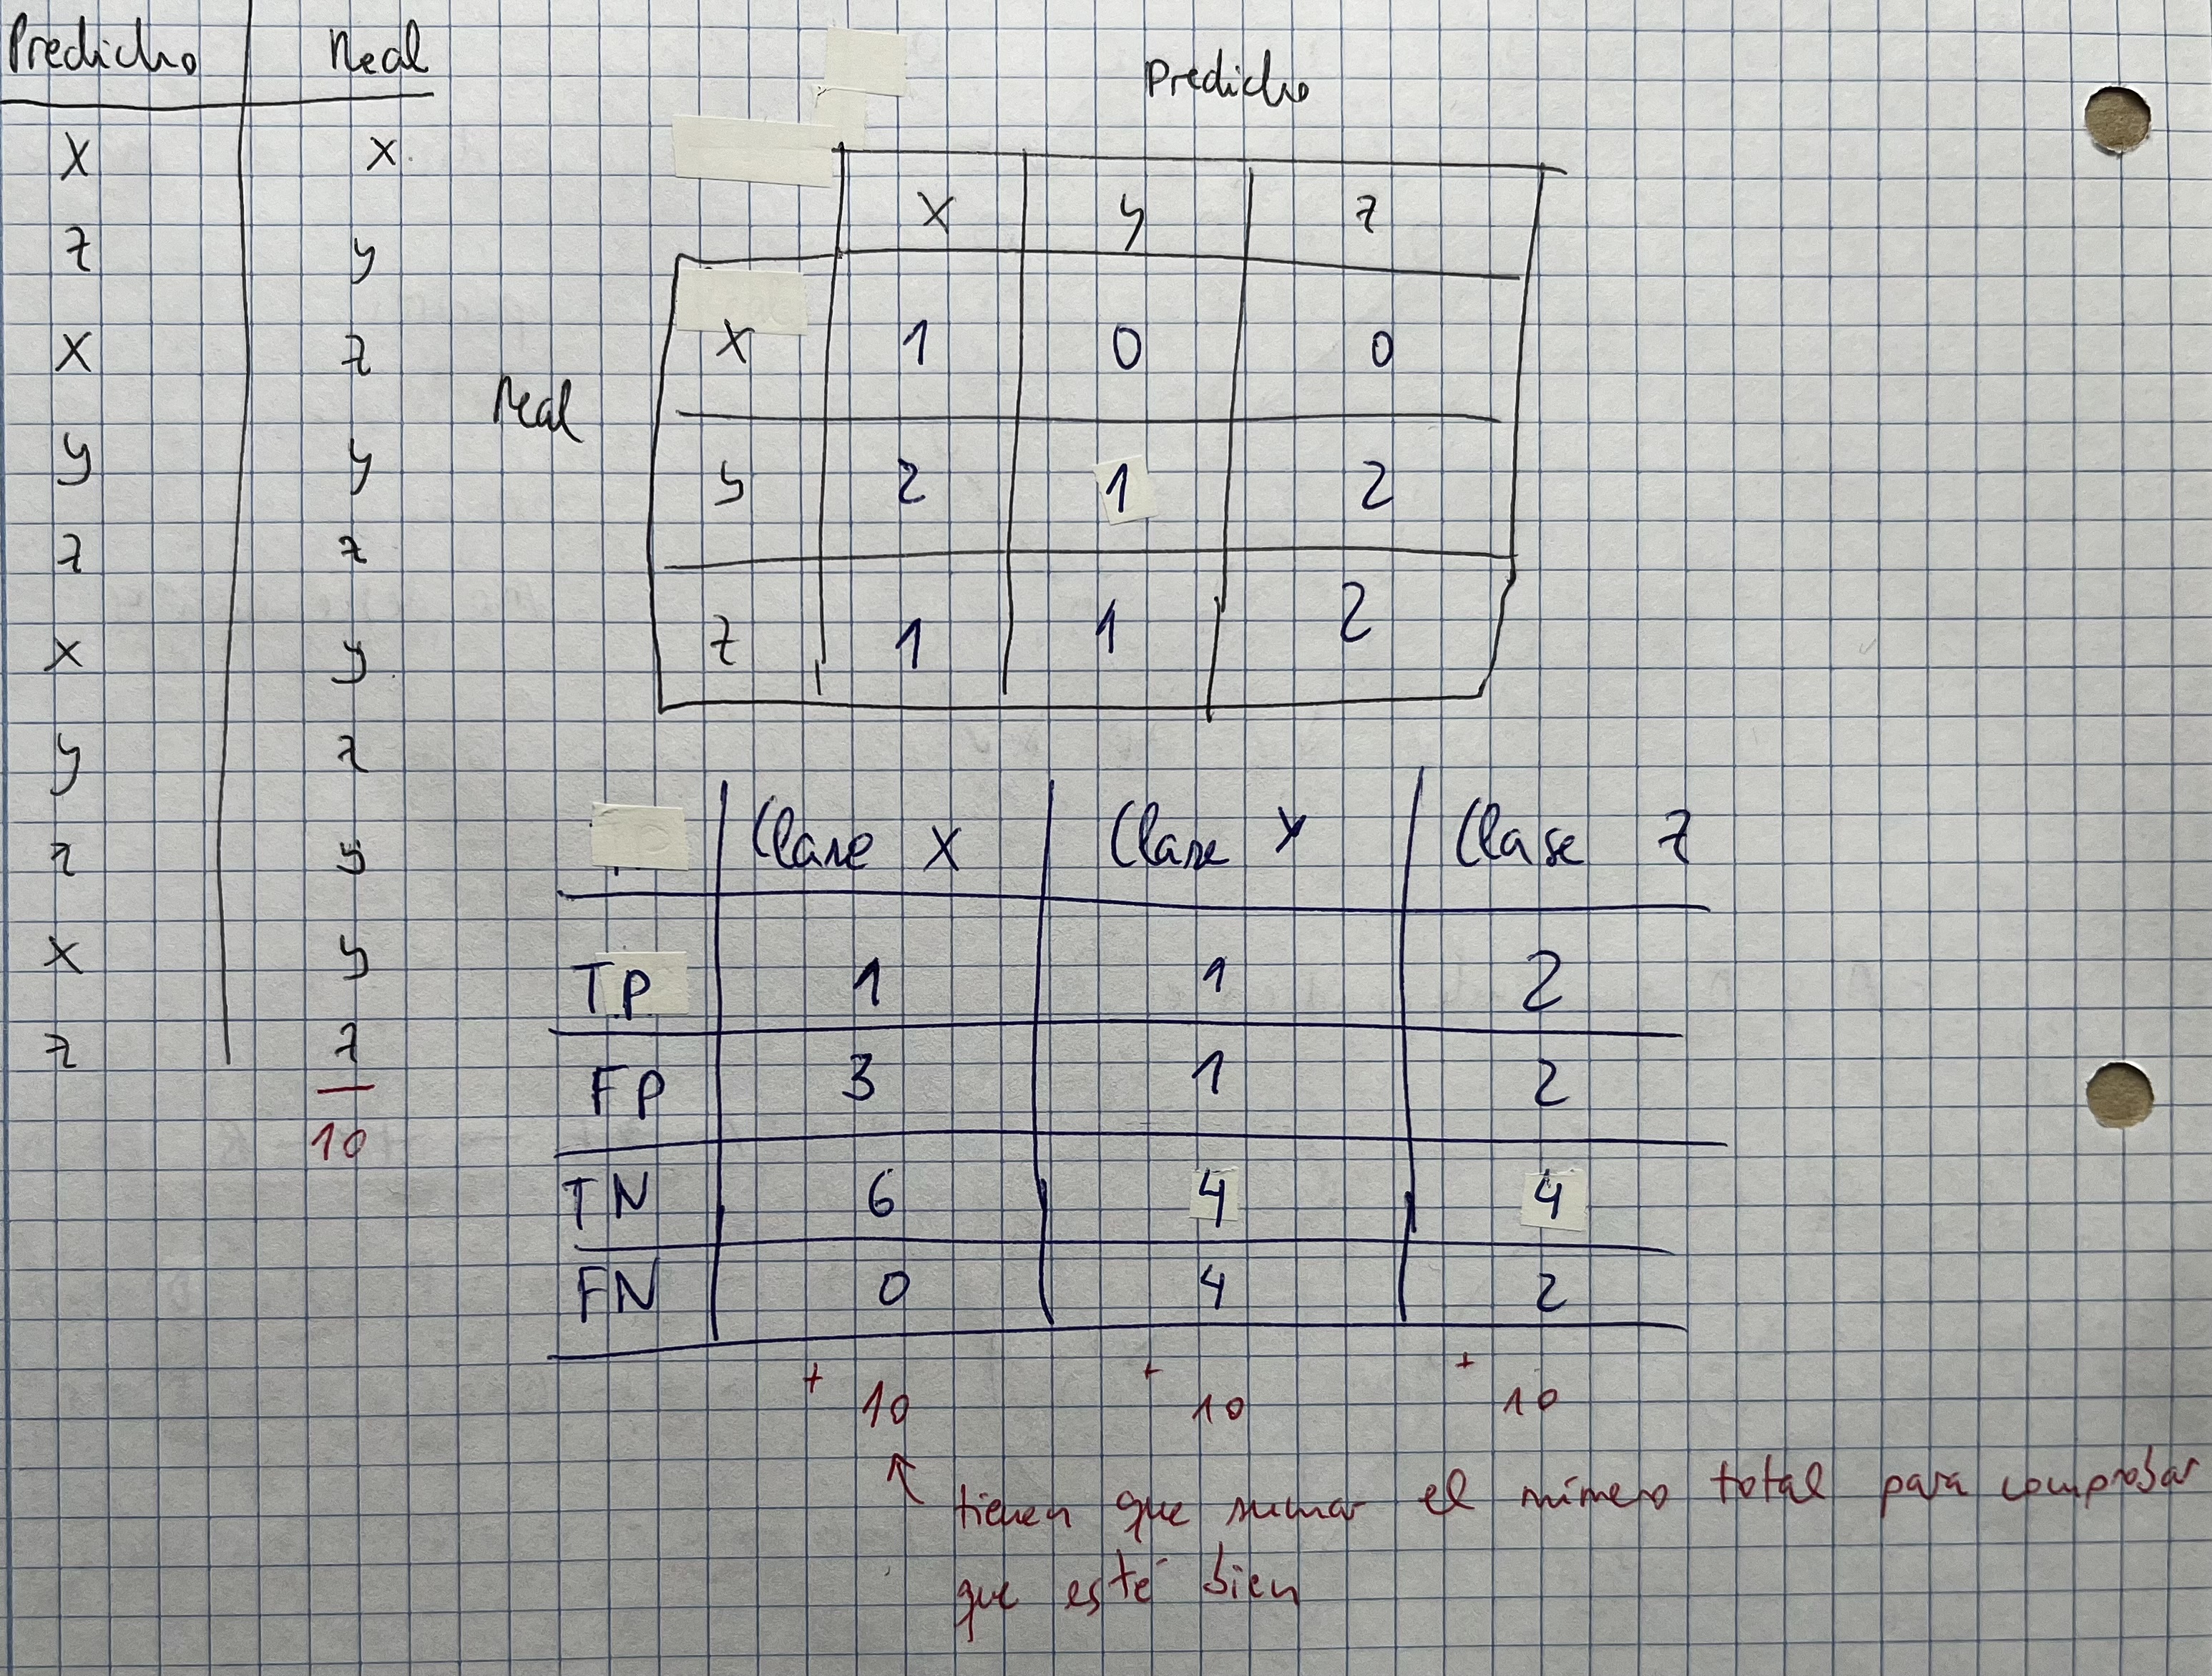 Predicho Real
X X
z y
X z
y y
z z
X y
y z
z y
X y
z z
10
Predicho
X y z
Real
X 1 0 0
y 2 1 2
z 1 1 2
Clase X Clase Y Clase z
TP 1 1 2
FP 3 1 2
TN 6 4 4
FN 0 4 2
+ 10 + 10 + 10
tienen que sumar el número total para comprobar
que esté bien